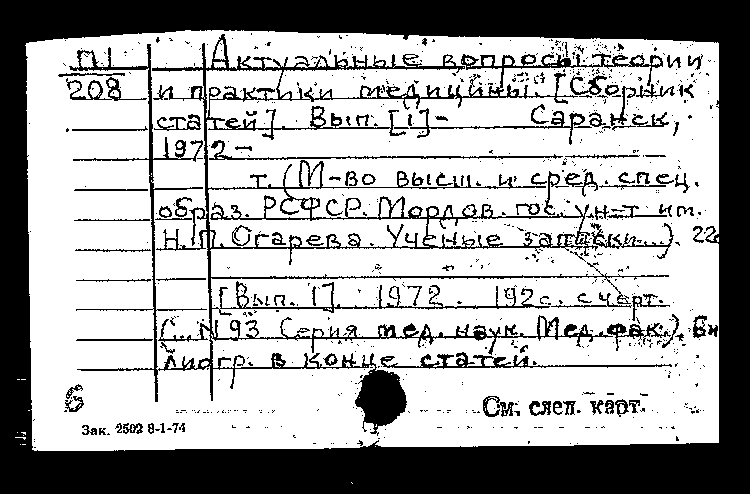 П1 Актуальные вопросы теории
208 и практики медицины. [Сборник
статей]. Вып. [1]- Саранск,
1972-
т. (М-во высш. и сред. спец.
образ. РСФСР. Мордов. гос. ун-т им.
Н.П. Огарева. Ученые записки...). 22с
[Вып. 1]. 1972. 192с. с черт.
(...N 93 Серия мед. наук. Мед. фак.). Би
лиогр. в конце статей.
б См. след. карт.
Зак. 2502 8-1-74